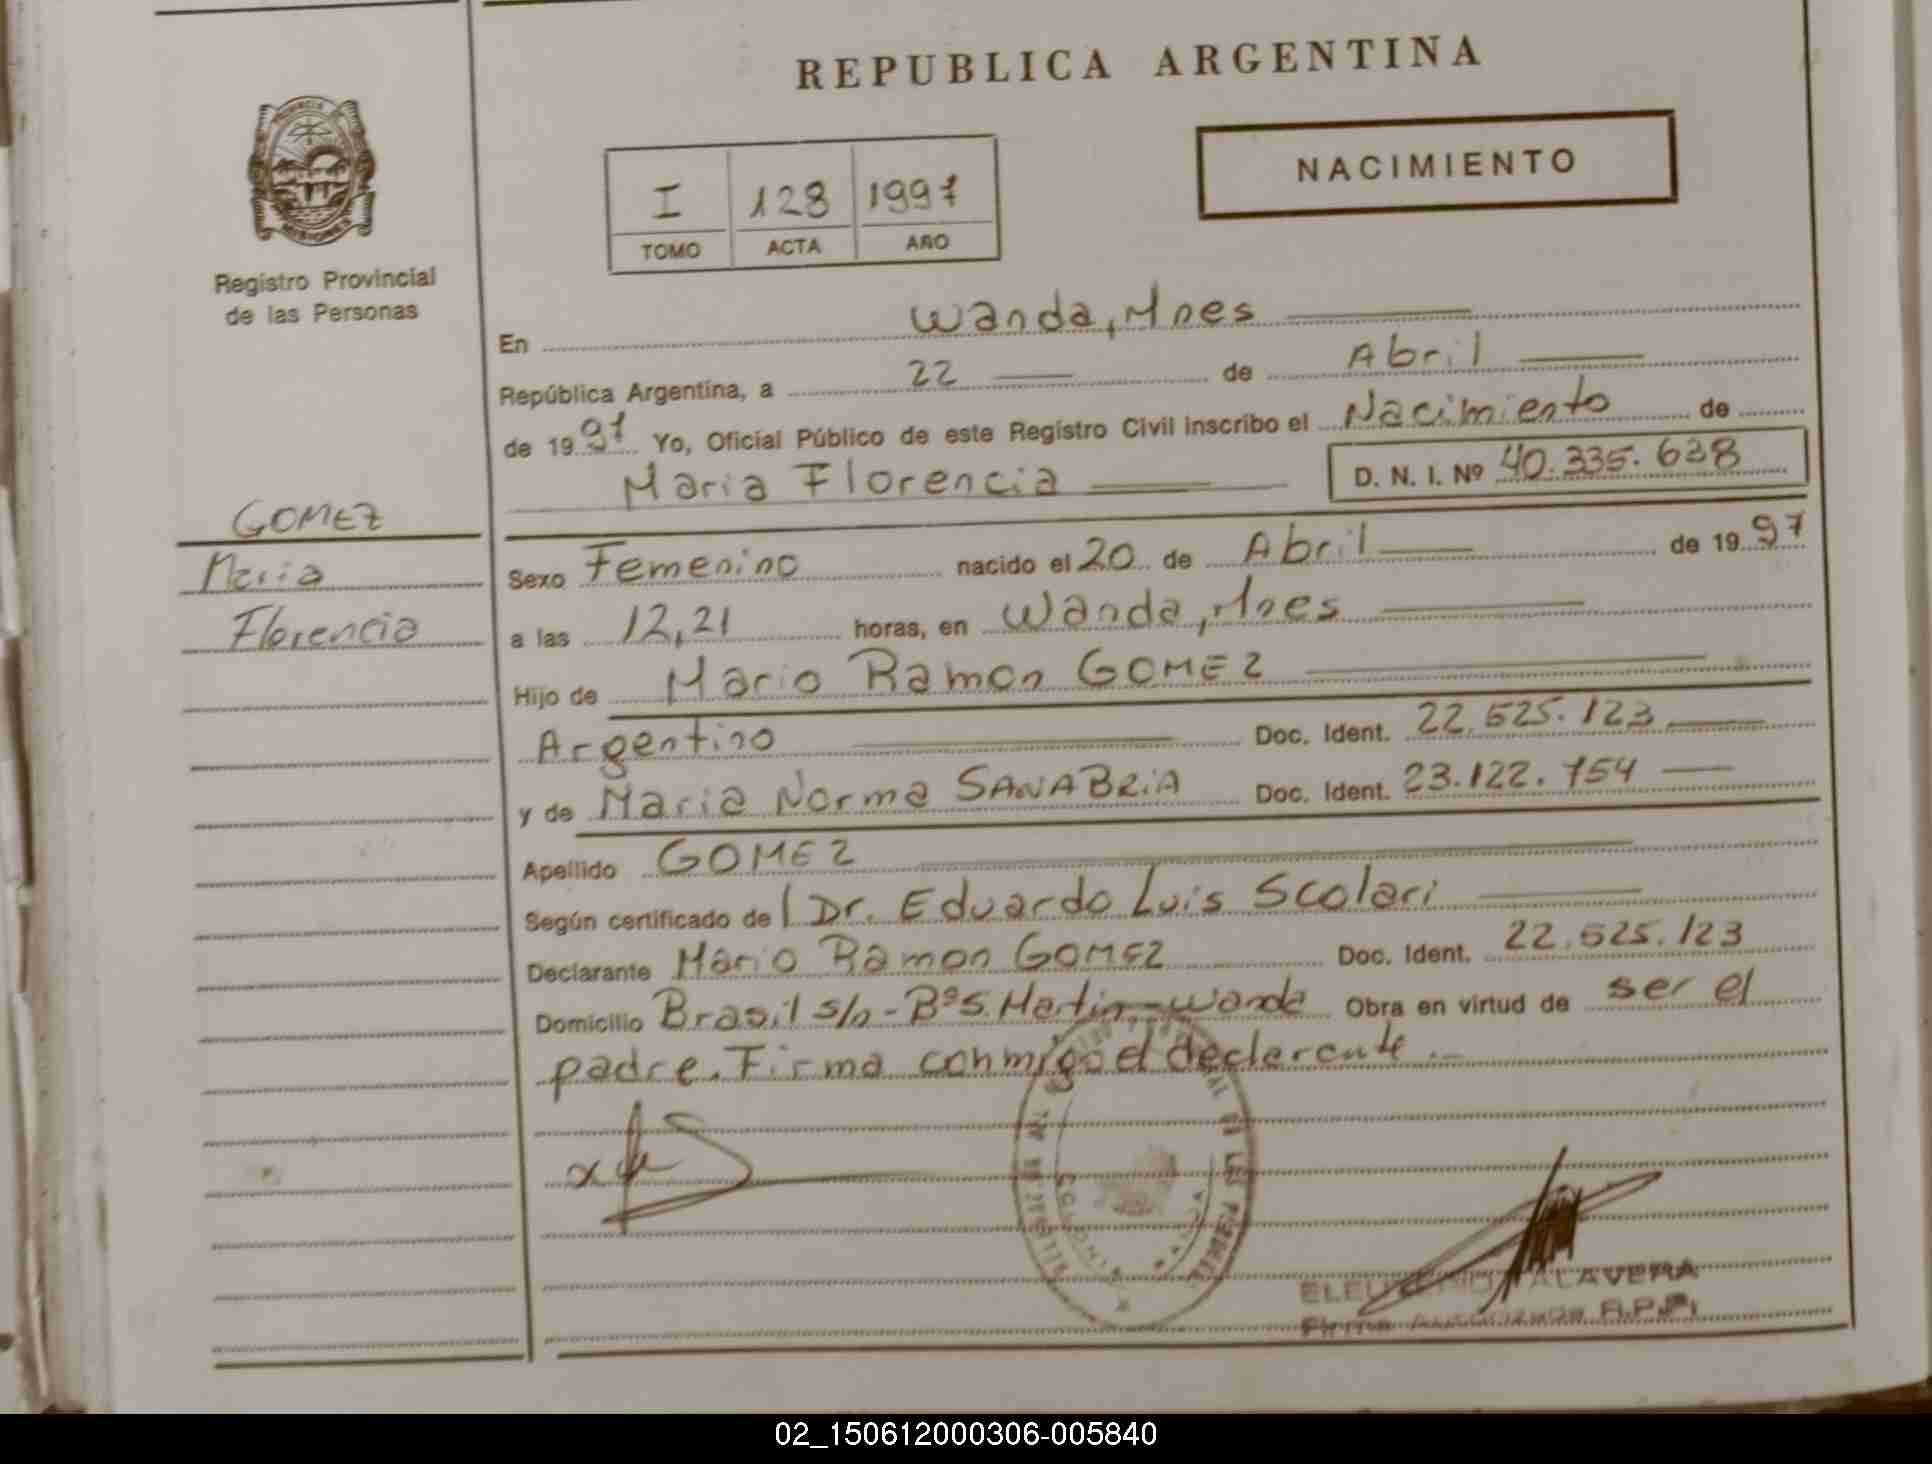 REPUBLICA ARGENTINA
NACIMIENTO
PROVINCIA
MISIONES
Registro Provincial
de las Personas
I 128 1997
TOMO ACTA AÑO
En Wanda, Mnes
República Argentina, a 22 de Abril
de 1997 Yo, Oficial Público de este Registro Civil inscribo el Nacimiento de
Maria Florencia D. N. I. Nº 40.335.638
GOMEZ
Maria
Florencia
Sexo Femenino nacido el 20 de Abril de 1997
a las 12,21 horas, en Wanda, Mnes
Hijo de Mario Ramon GOMEZ
Argentino Doc. Ident. 22.525.123
y de Maria Norma SANABRIA Doc. Ident. 23.122.754
Apellido GOMEZ
Según certificado del Dr. Eduardo Luis Scolari
Declarante Mario Ramon GOMEZ Doc. Ident. 22.525.123
Domicilio Brasil s/n - Bº S. Martin - Wanda Obra en virtud de ser el
padre. Firma conmigo el declarante.-
ALAVERA
02_150612000306-005840